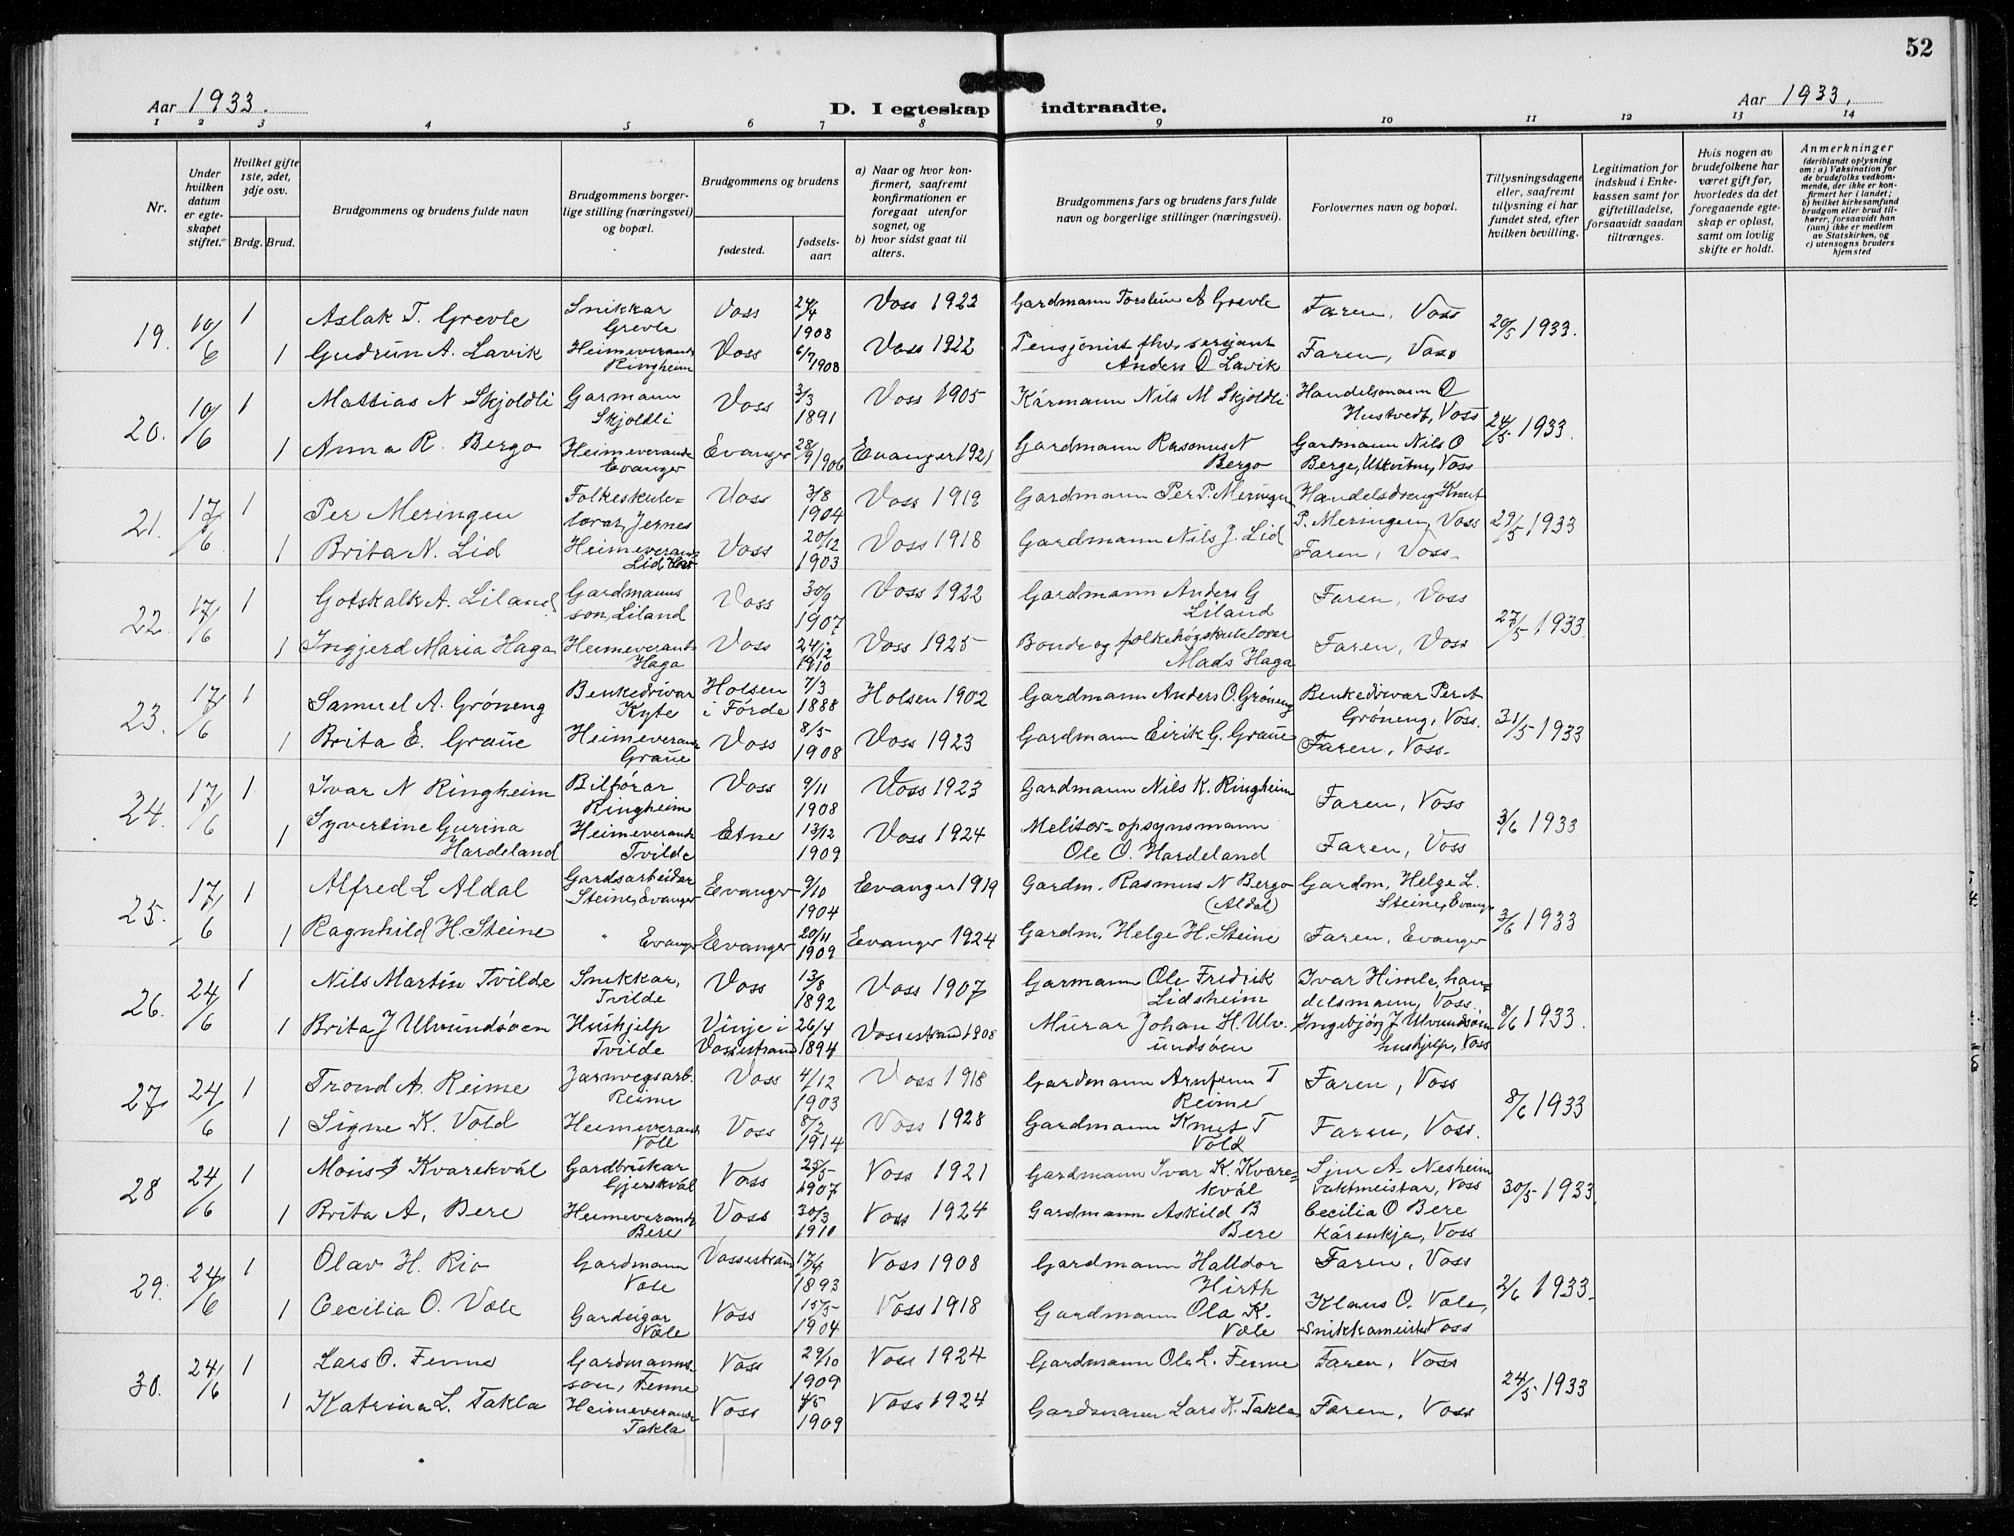 52
Aar 1933.
D. I egteskap indtraadte.
Aar 1933.
1 2 3 4 5 6 7 8 9 10 11 12 13 14
Nr.
Under hvilken datum er egteskapet stiftet.
Hvilket gifte 1ste, 2det, 3dje osv.
Brdg. Brud.
Brudgommens og brudens fulde navn
Brudgommens borgerlige stilling (næringsvei) og bopæl.
Brudgommens og brudens
fødested.
fødselsaar.
a) Naar og hvor konfirmert, saafremt konfirmationen er foregaat utenfor sognet, og
b) hvor sidst gaat til alters.
Brudgommens fars og brudens fars fulde navn og borgerlige stillinger (næringsvei).
Forlovernes navn og bopæl.
Tillysningsdagene eller, saafremt tillysning ei har fundet sted, efter hvilken bevilling.
Legitimation for indskud i Enkekassen samt for giftetilladelse, forsaavidt saadan tiltrænges.
Hvis nogen av brudefolkene har været gift før, hvorledes da det foregaaende egteskap er opløst, samt om lovlig skifte er holdt.
Anmerkninger
(deriblandt oplysning om: a) Vaksination for de brudefolks vedkommende, der ikke er konfirmert her i landet; b) hvilket kirkesamfund brudgom eller brud tilhører, forsaavidt han (hun) ikke er medlem av Statskirken, og c) utensogns bruders hjemsted
19. 10/6 1 Aslak T. Grevle Snikkar Grevle Voss 24/4 1908 Voss 1922 Gardmann Torstein A Grevle Faren, Voss 20/5 1933.
1 Gudrun A. Lavik Heimeverande Ringheim Voss 6/7 1908 Voss 1922 Pensjonist fhv. sersjant Anders O Lavik Faren, Voss
20. 10/6 1 Mattias N Skjoldli Garmann Skjoldli Voss 3/3 1891 Voss 1905 Kármann Nils M Skjoldli Handelsmann O Hustvedt, Voss 24/5 1933.
1 Anna R. Bergo Heimeverande Evanger Evanger 28/9 1906 Evanger 1921 Gardmann Rasmus N Bergo Gardmann Nils O Berge, Utkvitne, Voss
21. 17/6 1 Per Meringen Folkeskulelærar, Jernes Voss 3/8 1904 Voss 1918 Gardmann Per P. Meringen Handelsdreng Knut P. Meringen, Voss 29/5 1933
1 Brita N. Lid Heimeverande Lid Voss 20/12 1903 Voss 1918 Gardmann Nils J. Lid Faren, Voss
22. 17/6 1 Gotskalk A. Liland Gardmannsson, Liland Voss 30/9 1907 Voss 1922 Gardmann Anders G Liland Faren, Voss 27/5 1933
1 Ingjerd Maria Haga Heimeverande Haga Voss 24/12 1910 Voss 1925 Bonde og folkehøgskulelærar Mads Haga Faren, Voss
23. 17/6 1 Samuel A. Gróneng Benkedrivar Kyte Holsen i Förde 7/3 1888 Holsen 1902 Gardmann Anders O. Gróneng Benkedrivar Per A Gróneng, Voss. 31/5 1933
1 Brita E. Graue Heimeverande Graue Voss 8/5 1908 Voss 1923 Gardmann Eirik G. Graue Faren, Voss
24. 17/6 1 Ivar N Ringheim Bilførar Ringheim Voss 9/11 1908 Voss 1923 Gardmann Nils K. Ringheim Faren, Voss 3/6 1933
1 Syvertine Gurina Hardeland Heimeverande Tvilde Etne 13/12 1909 Voss 1924 Melitær-opsynsmann Ole O. Hardeland Faren, Voss
25. 17/6 1 Alfred L Aldal Gardsarbeidar Steine, Evanger Evanger 9/10 1904 Evanger 1919 Gardm. Rasmus N Bergo (Aldal) Gardm, Helge L. Steine, Evanger 3/6 1933
1 Ragnhild H. Steine " Evanger Evanger 20/11 1909 Evanger 1924 Gardm. Helge H. Steine Faren, Evanger
26. 24/6 1 Nils Martin Tvilde Snikkar, Tvilde Voss 13/8 1892 Voss 1907 Garmann Ole Fredrik Lidsheim Ivar Himle, handelsmann, Voss 8/6 1933.
1 Brita J Ulvundsøen Hushjelp Tvilde Vinje i Vossestrand 26/4 1894 Vossestrand 1908 Murar Johan H. Ulvundsøen Ingebjørg J Ulvundsøen hushjelp, Voss
27. 24/6 1 Trond A. Reime Jarnvegsarb. Reime Voss 4/12 1903 Voss 1918 Gardmann Arnfinn T Reime Faren, Voss 8/6 1933
1 Signe K. Vold Heimeverande Voll Voss 8/2 1914 Voss 1928 Gardmann Knut T Vold Faren, Voss.
28 24/6 1 Mons I Kvarekvál Gardbrukar Gjerskvál Voss 25/5 1907 Voss 1921 Gardmann Ivar K. Kvarekvál Sjur A. Nesheim vaktmeistar, Voss 30/5 1933.
1 Brita A. Bere Heimeverande Bere Voss 30/3 1910 Voss 1924 Gardmann Askild B Bere Cecilia O Bere kárenkja, Voss
29. 24/6 1 Olav H. Rio Gardmann Væle Vossestrand 17/4 1893 Voss 1908 Gardmann Halldor Hirth Faren, Voss 2/6 1933.
1 Cecilia O. Væle Gardeigar Væle Voss 15/5 1904 Voss 1918 Gardmann Ola K. Væle Klaus O. Væle, Snikkameister Voss
30. 24/6 1 Lars O. Fenne Gardmannsson, Fenne Voss 29/10 1909 Voss 1924 Gardmann Ole L. Fenne Faren, Voss 24/5 1933
1 Katrina L. Takla Heimeverande Takla Voss 4/5 1909 Voss 1924 Gardmann Lars K. Takla Faren, Voss